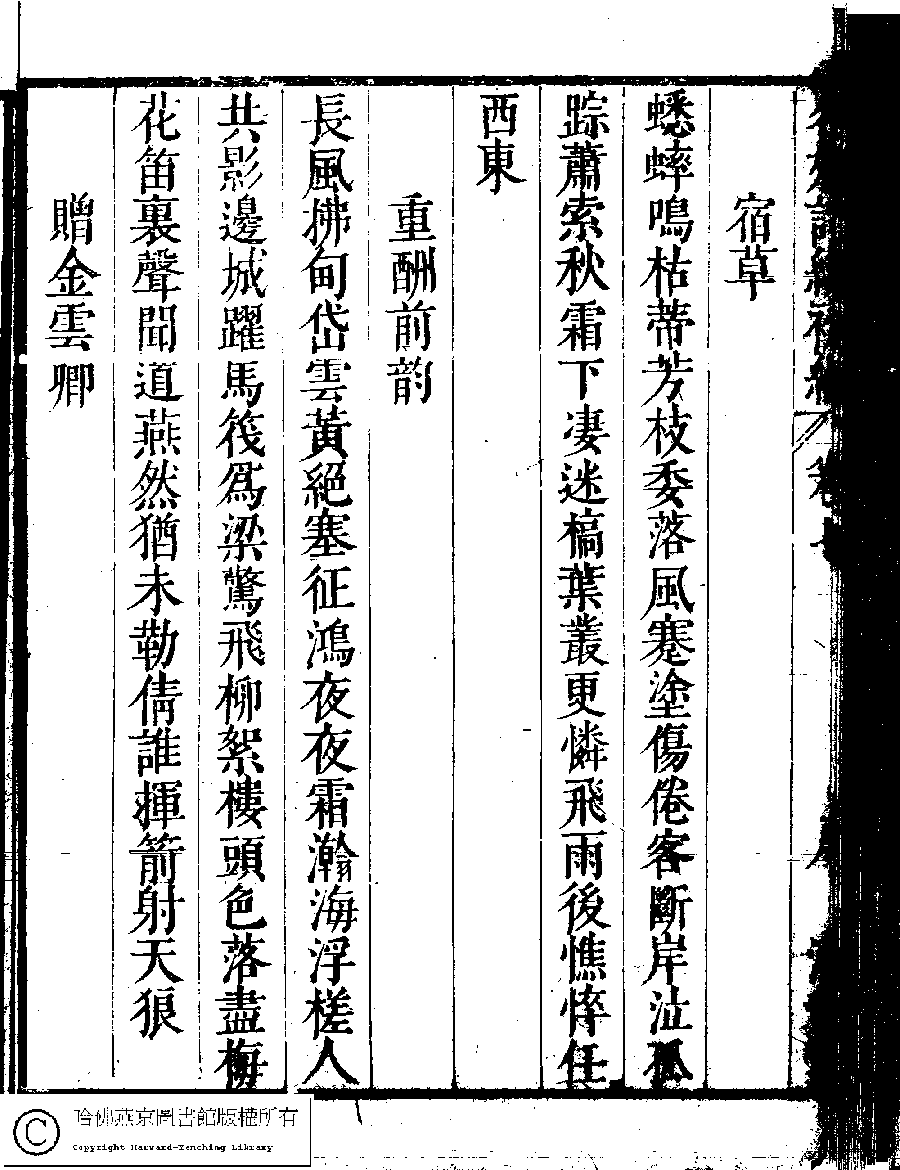 宿草
蟋蟀鳴枯蒂芳枝委落風蹇塗傷倦客斷岸泣孤
踪蕭索秋霜下凄迷槁葉叢更憐飛雨後憔悴任
西東
重酬前韵
長風拂甸岱雲黃絕塞征鴻夜夜霜瀚海浮槎人
共影邊城躍馬筏爲梁驚飛柳絮樓頭色落盡梅
花笛裏聲聞道燕然猶未勒倩誰揮箭射天狼
贈金雲卿
哈佛燕京圖書館版權所有
Copyright Harvard-Yenching Library